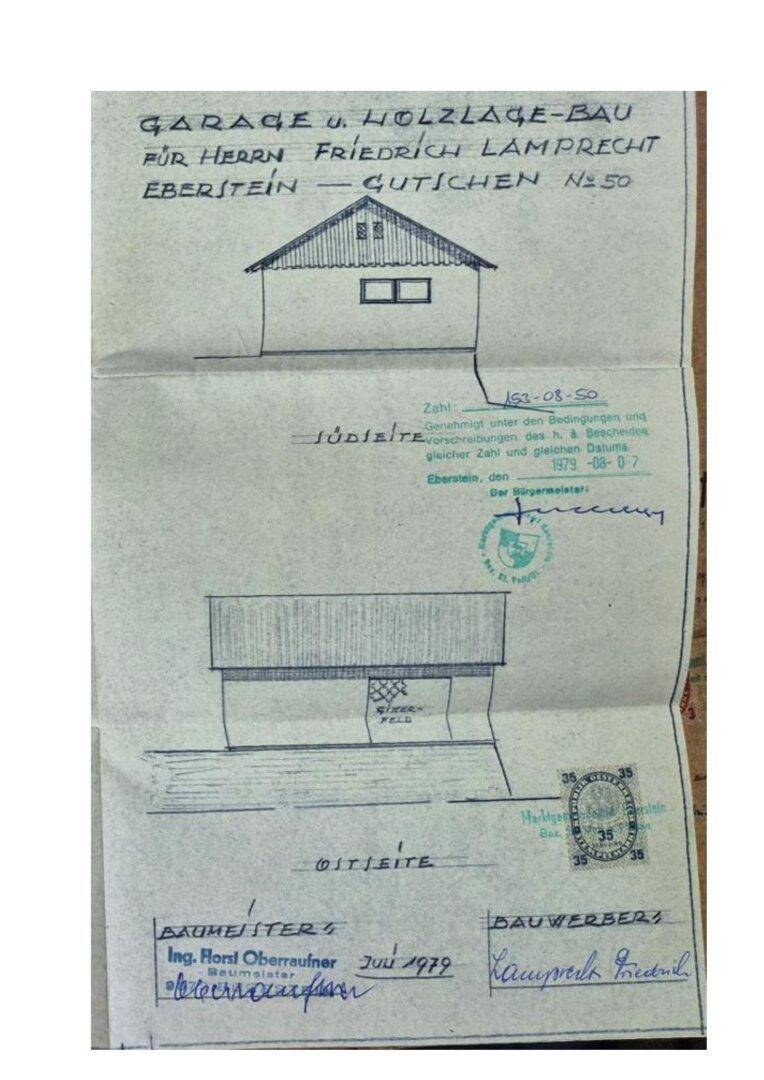 GARAGE u. HOLZLAGE-BAU
FÜR HERRN FRIEDRICH LAMPRECHT
EBERSTEIN — GUTSCHEN No 50
Zahl: 153-08-50
Genehmigt unter den Bedingungen und
Vorschreibungen des h. ä. Bescheides
gleicher Zahl und gleichen Datums.
1979 -08- 07
Eberstein, den
Der Bürgermeister:
SÜDSEITE
GITTER-
FELD
35 35
35
35 35
OSTSEITE
BAUMEISTER:
Ing. Horst Oberraufner
Baumeister
JULI 1979
BAUWERBER:
Lamprecht Friedrich